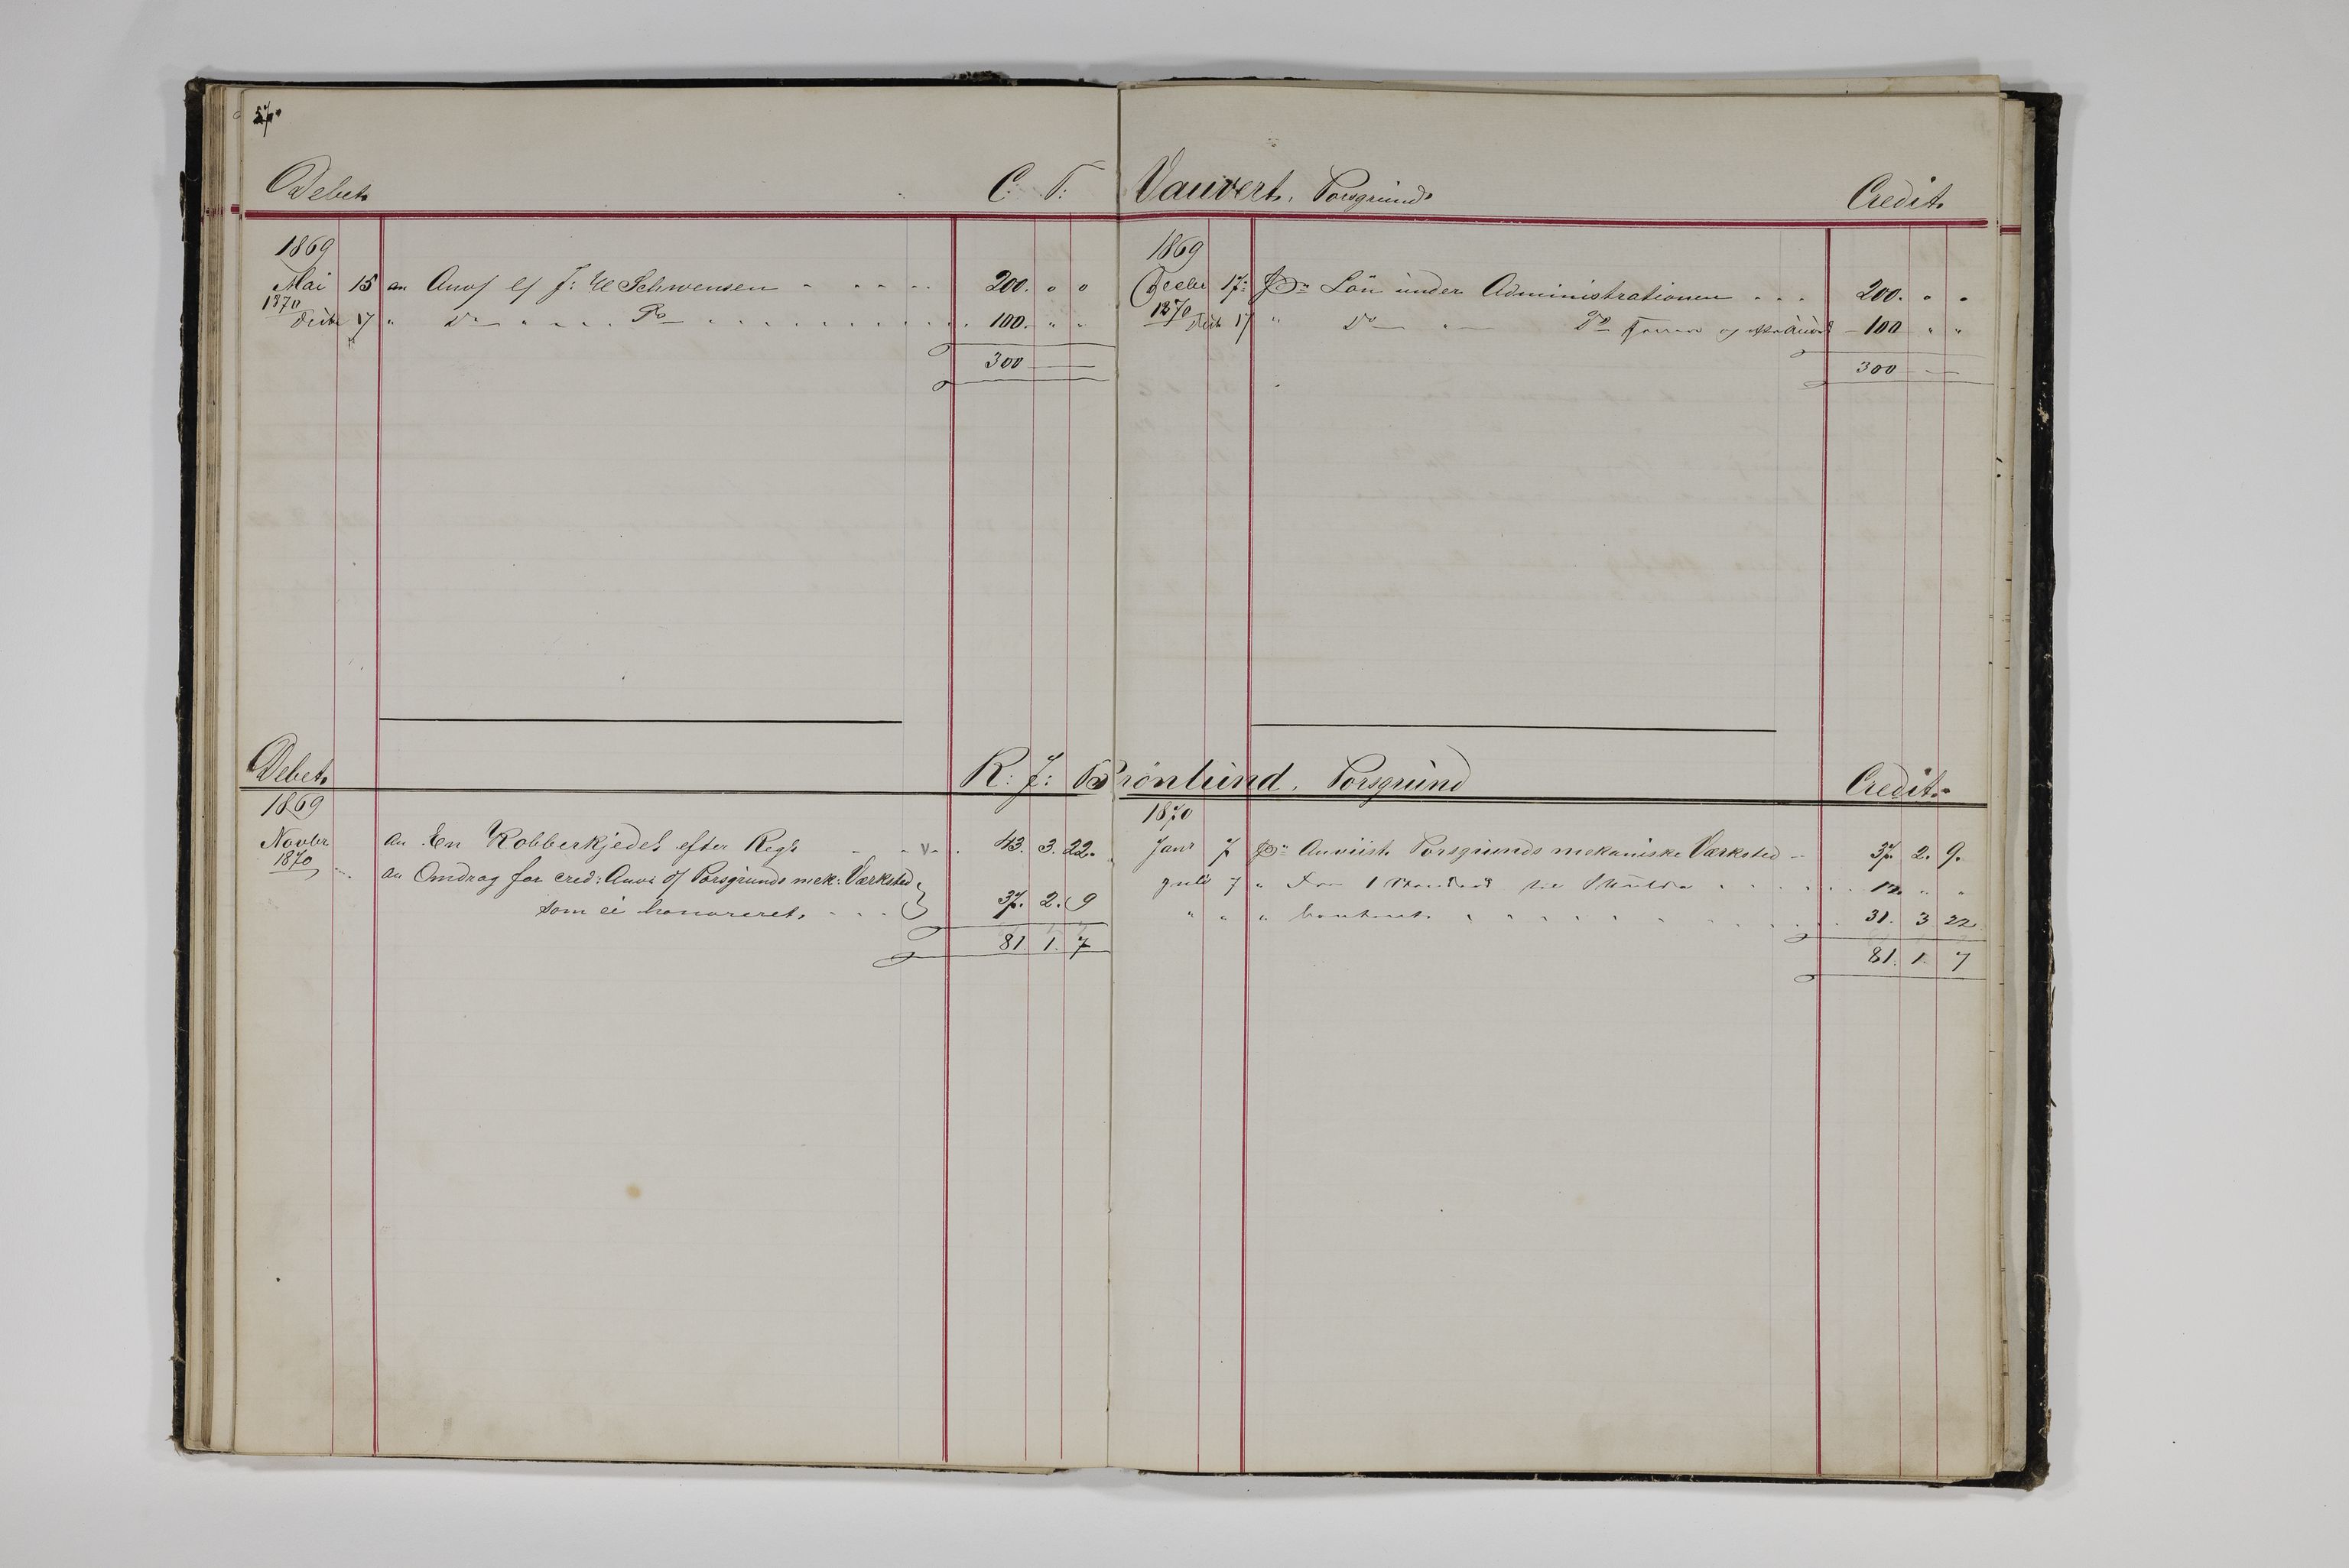 57.
Debet. C: T: Vauvert, Porsgrund. Credit.
1869
Mai 15 an Anvs af J: W Schwensen 200. " "
1870
Feb 17 " Do " Do 100. " "
300
1869
Decbr 17 Pr Lön under Administrationen 200. " "
1870 Feb 17 " Do " Do 100 " "
300
Debet. R: J: Brönlund. Porsgrund Credit.
1869
Novbr an En Kobberkjedel efter Reg's v. 43. 3. 22.
1870
an Omdrag for cred: Anvi af Porsgrunds mek: Værksted
som ei honoreret. 37. 2. 9
81. 1. 7
1870
Janr 7 Pr Anviist Porsgrunds mekaniske Værksted 37. 2. 9.
Juli 7 " 1 12. " "
" " " Contant. 31. 3 22
81. 1. 7